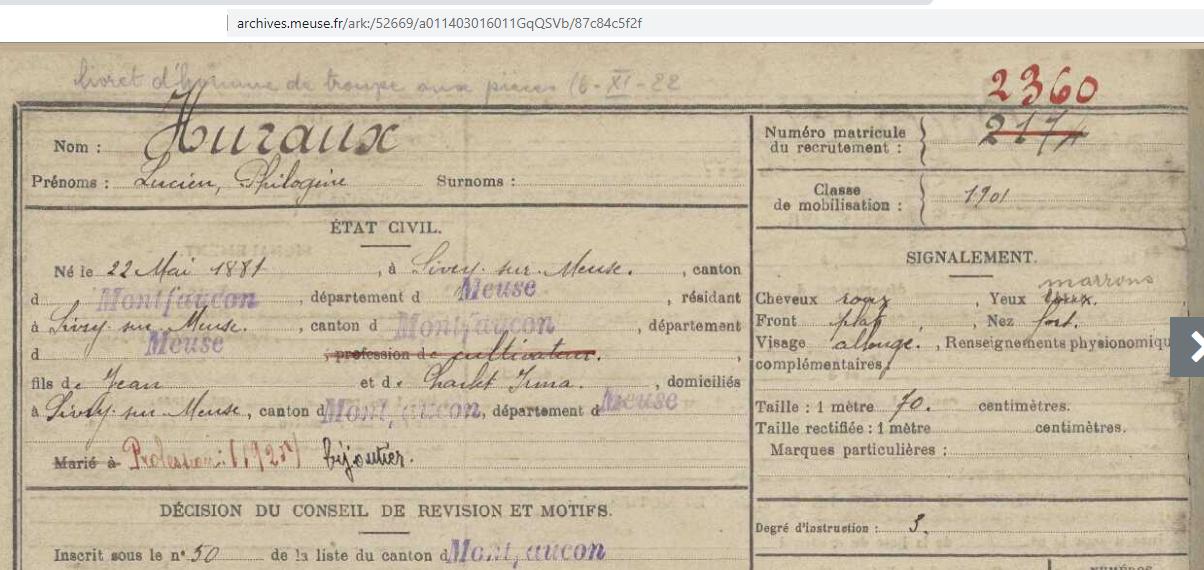 archives.meuse.fr/ark:/52669/a011403016011GqQSVb/87c84c5f2f
livret d'homme de troupe aux pièces 16-XI-22
2360
Nom : Huraux
Numéro matricule du recrutement : 2174
Prénoms : Lucien, Philogène Surnoms :
Classe de mobilisation : 1901
ÉTAT CIVIL.
Né le 22 Mai 1881, à Sivry-sur-Meuse., canton
d Montfaucon, département d Meuse, résidant
à Sivry sur Meuse., canton d Montfaucon, département
d Meuse profession de cultivateur.,
fils de Jean et de Charlet Irma., domiciliés
à Sivry sur Meuse, canton d Montfaucon, département d Meuse
Marié à Profession: (1927) bijoutier.
DÉCISION DU CONSEIL DE REVISION ET MOTIFS.
Inscrit sous le n° 50 de la liste du canton d Montfaucon
SIGNALEMENT.
marrons
Cheveux roux, Yeux
Front plat, Nez fort.
Visage allongé., Renseignements physionomiqu
complémentaires :
Taille : 1 mètre 70. centimètres.
Taille rectifiée : 1 mètre centimètres.
Marques particulières :
Degré d'instruction : 3.
NUMÉROS